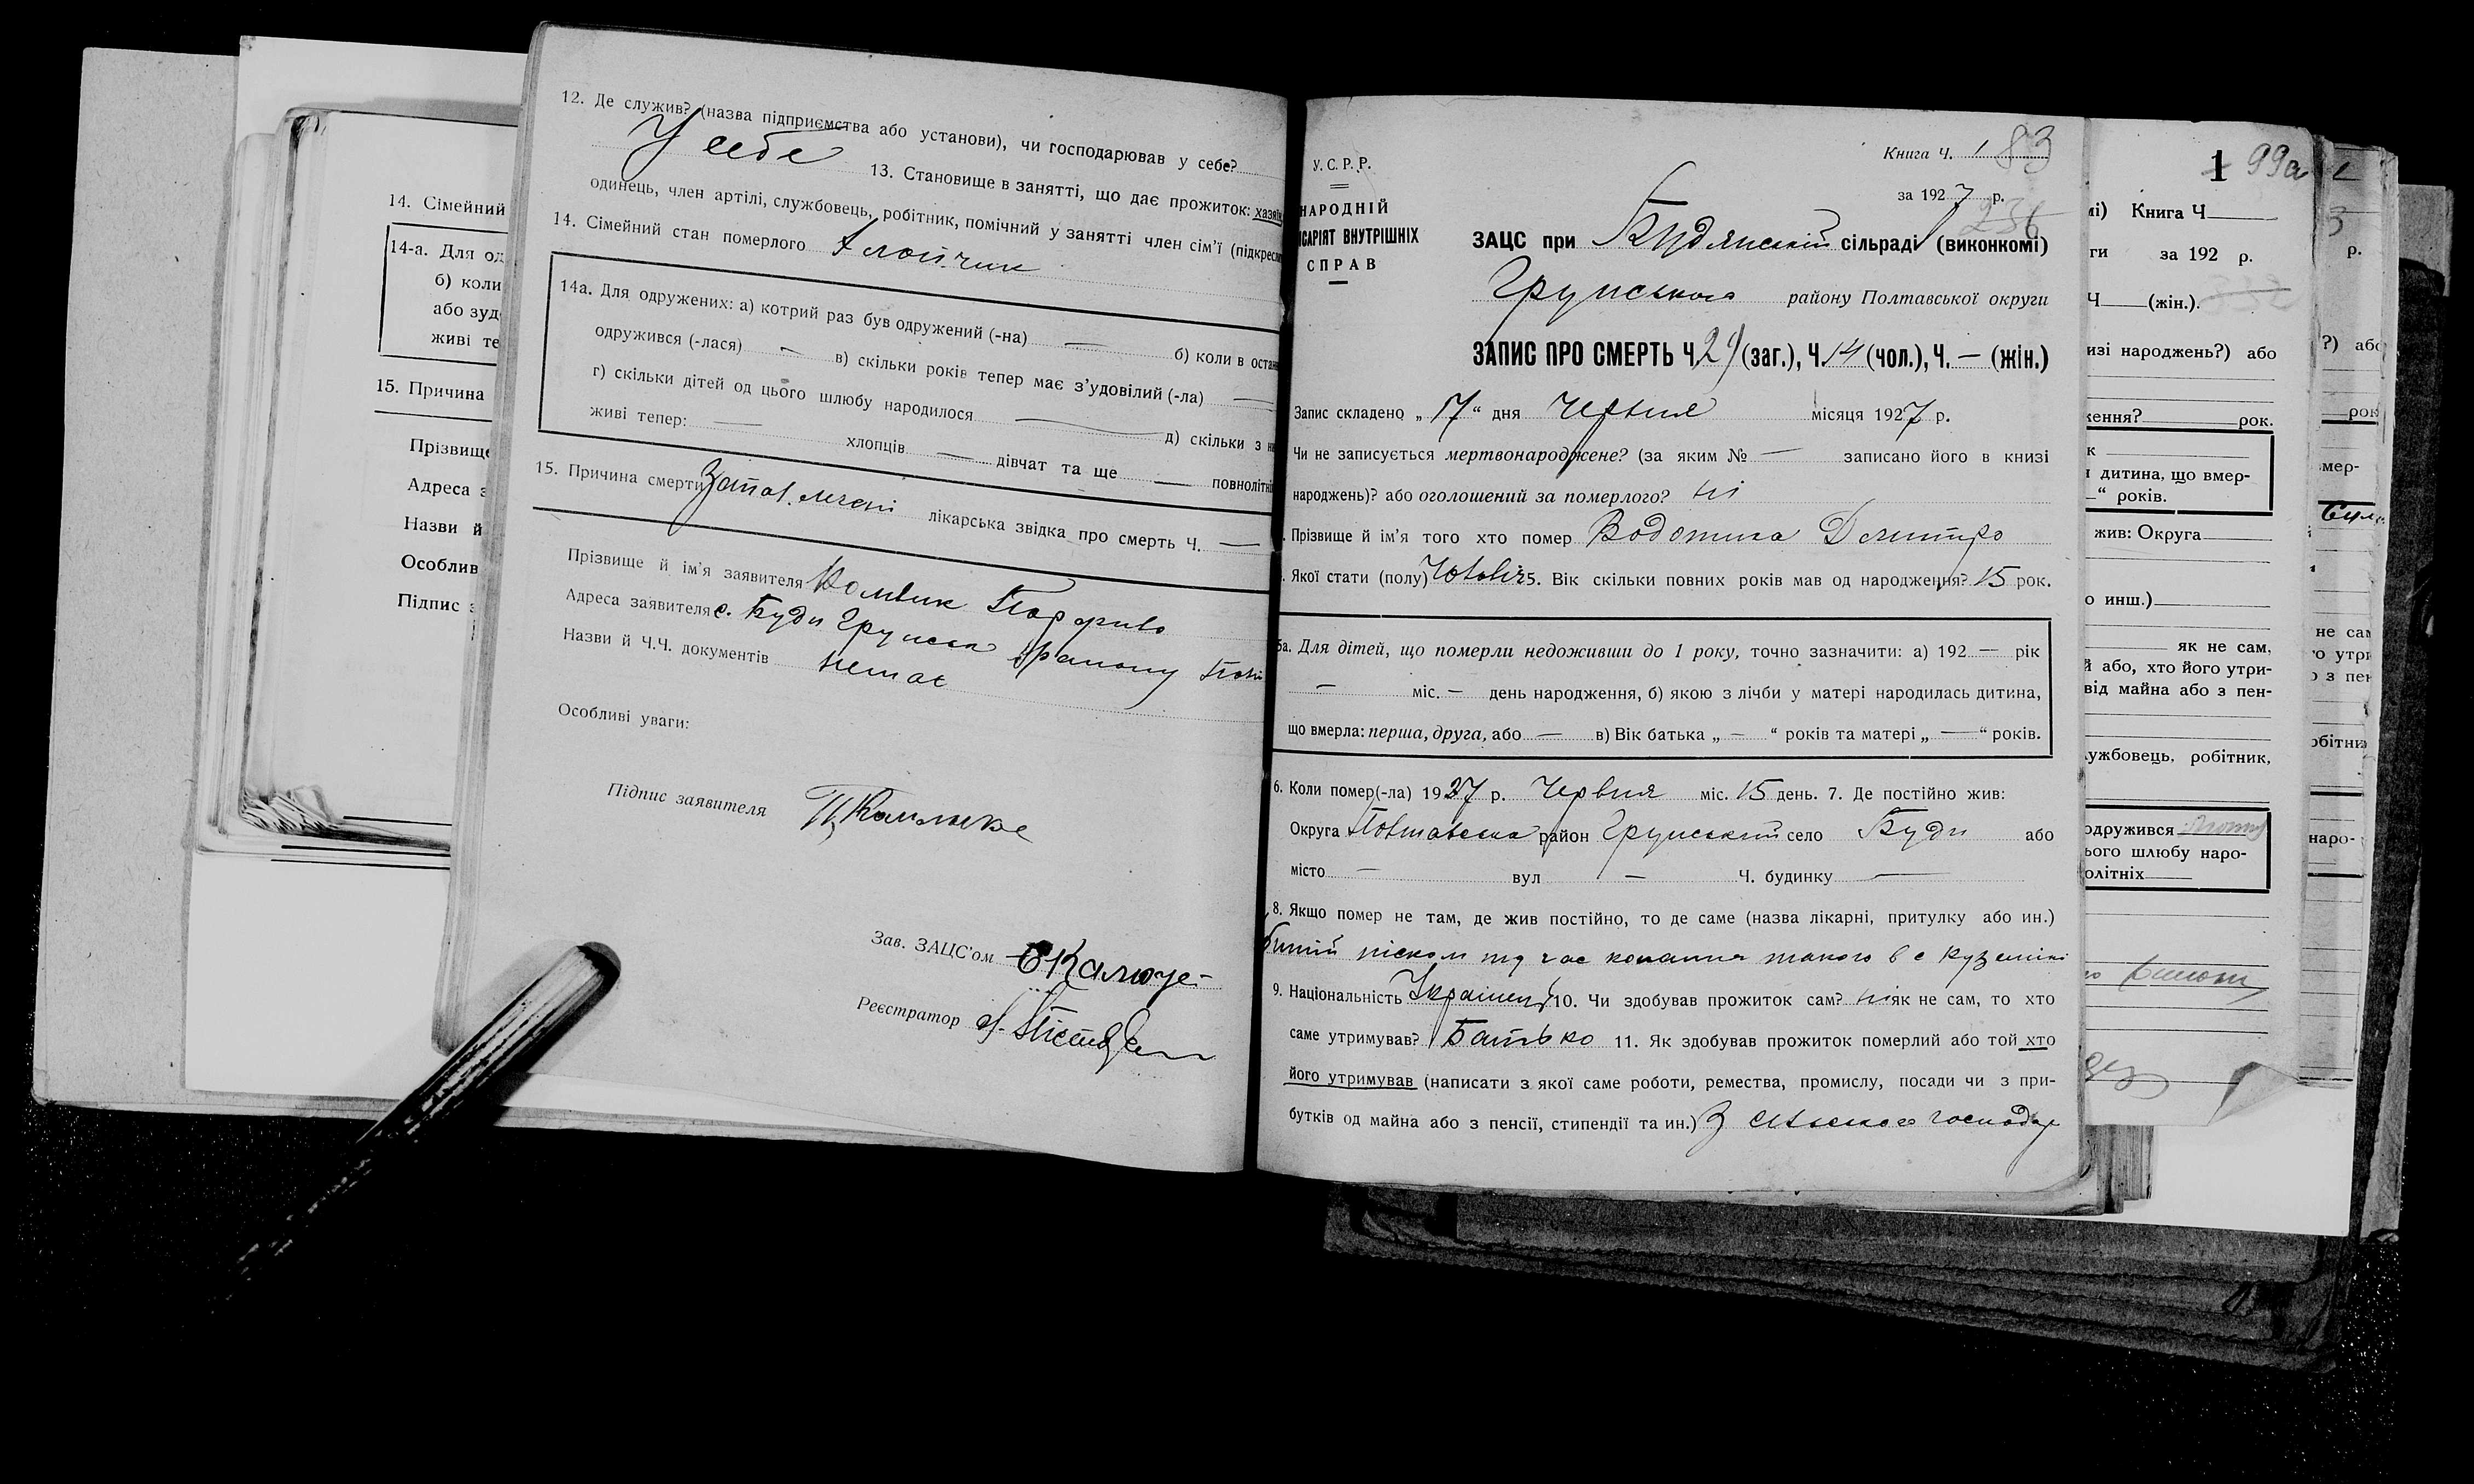 14. Сімейний
14-а. Для од
б) коли
або зуд
живі те
15. Причина
Прізвище
Адреса з
Назви й
Особлив
Підпис з
12. Де служив? (назва підприємства або установи), чи господарював у себе?
У себе 13. Становище в занятті, що дає прожиток: хазяїн,
одинець, член артілі, службовець, робітник, помічний у занятті член сім’ї (підкресли
14. Сімейний стан померлого
14а. Для одружених: а) котрий раз був одружений (-на) — б) коли в остан
одружився (-лася) — в) скільки років тепер має з’удовілий (-ла) —
г) скільки дітей од цього шлюбу народилося — д) скільки з ни
живі тепер: — хлопців — дівчат та ще — повнолітніх
15. Причина смерти лікарська звідка про смерть Ч. —
Прізвище й ім’я заявителя
Адреса заявителя с. Буди
Назви й Ч.Ч. документів немає
Особливі уваги:
Підпис заявителя
Зав. ЗАЦС’ом
Реєстратор
У. С. Р. Р.
НАРОДНІЙ
ІСАРІЯТ ВНУТРІШНІХ
СПРАВ
Книга Ч. 1 83
за 1927 р.
236
ЗАЦС при Будянській сільраді (виконкомі)
Грунського району Полтавської округи
ЗАПИС ПРО СМЕРТЬ Ч. 29 (заг.), Ч. 14 (чол.), Ч. — (жін.)
Запис складено „ 17 “ дня Червня місяця 1927 р.
Чи не записується мертвонароджене? (за яким № — записано його в книзі
народжень)? або оголошений за померлого? ні
Прізвище й ім’я того хто помер Дмитро
Якої стати (полу) 5. Вік скільки повних років мав од народження? 15 рок.
5а. Для дітей, що померли недоживши до 1 року, точно зазначити: а) 192 — рік
— міс. — день народження, б) якою з лічби у матері народилась дитина,
що вмерла: перша, друга, або — в) Вік батька „ — “ років та матері „ — “ років.
6. Коли помер(-ла) 1927 р. Червня міс. 15 день. 7. Де постійно жив:
Округа Полтавська район Грунський село Буди або
місто — вул — Ч. будинку —
8. Якщо помер не там, де жив постійно, то де саме (назва лікарні, притулку або ин.)
піском під час копання такого в с
9. Національність Українець 10. Чи здобував прожиток сам? ні як не сам, то хто
саме утримував? Батько 11. Як здобував прожиток померлий або той хто
його утримував (написати з якої саме роботи, ремества, промислу, посади чи з при-
бутків од майна або з пенсії, стипендії та ин.) З сільського господар
1 99а
мі) Книга Ч
ги за 192 р.
Ч (жін.)
изі народжень?) або
ження? рок.
к
я дитина, що вмер-
“ років.
жив: Округа
о инш.)
як не сам,
й або, хто його утри-
від майна або з пен-
лужбовець, робітник,
одружився
ього шлюбу наро-
олітніх
р.
?) або
рок
вмер-
не сам
о утри
о з пен
обітни
наро-